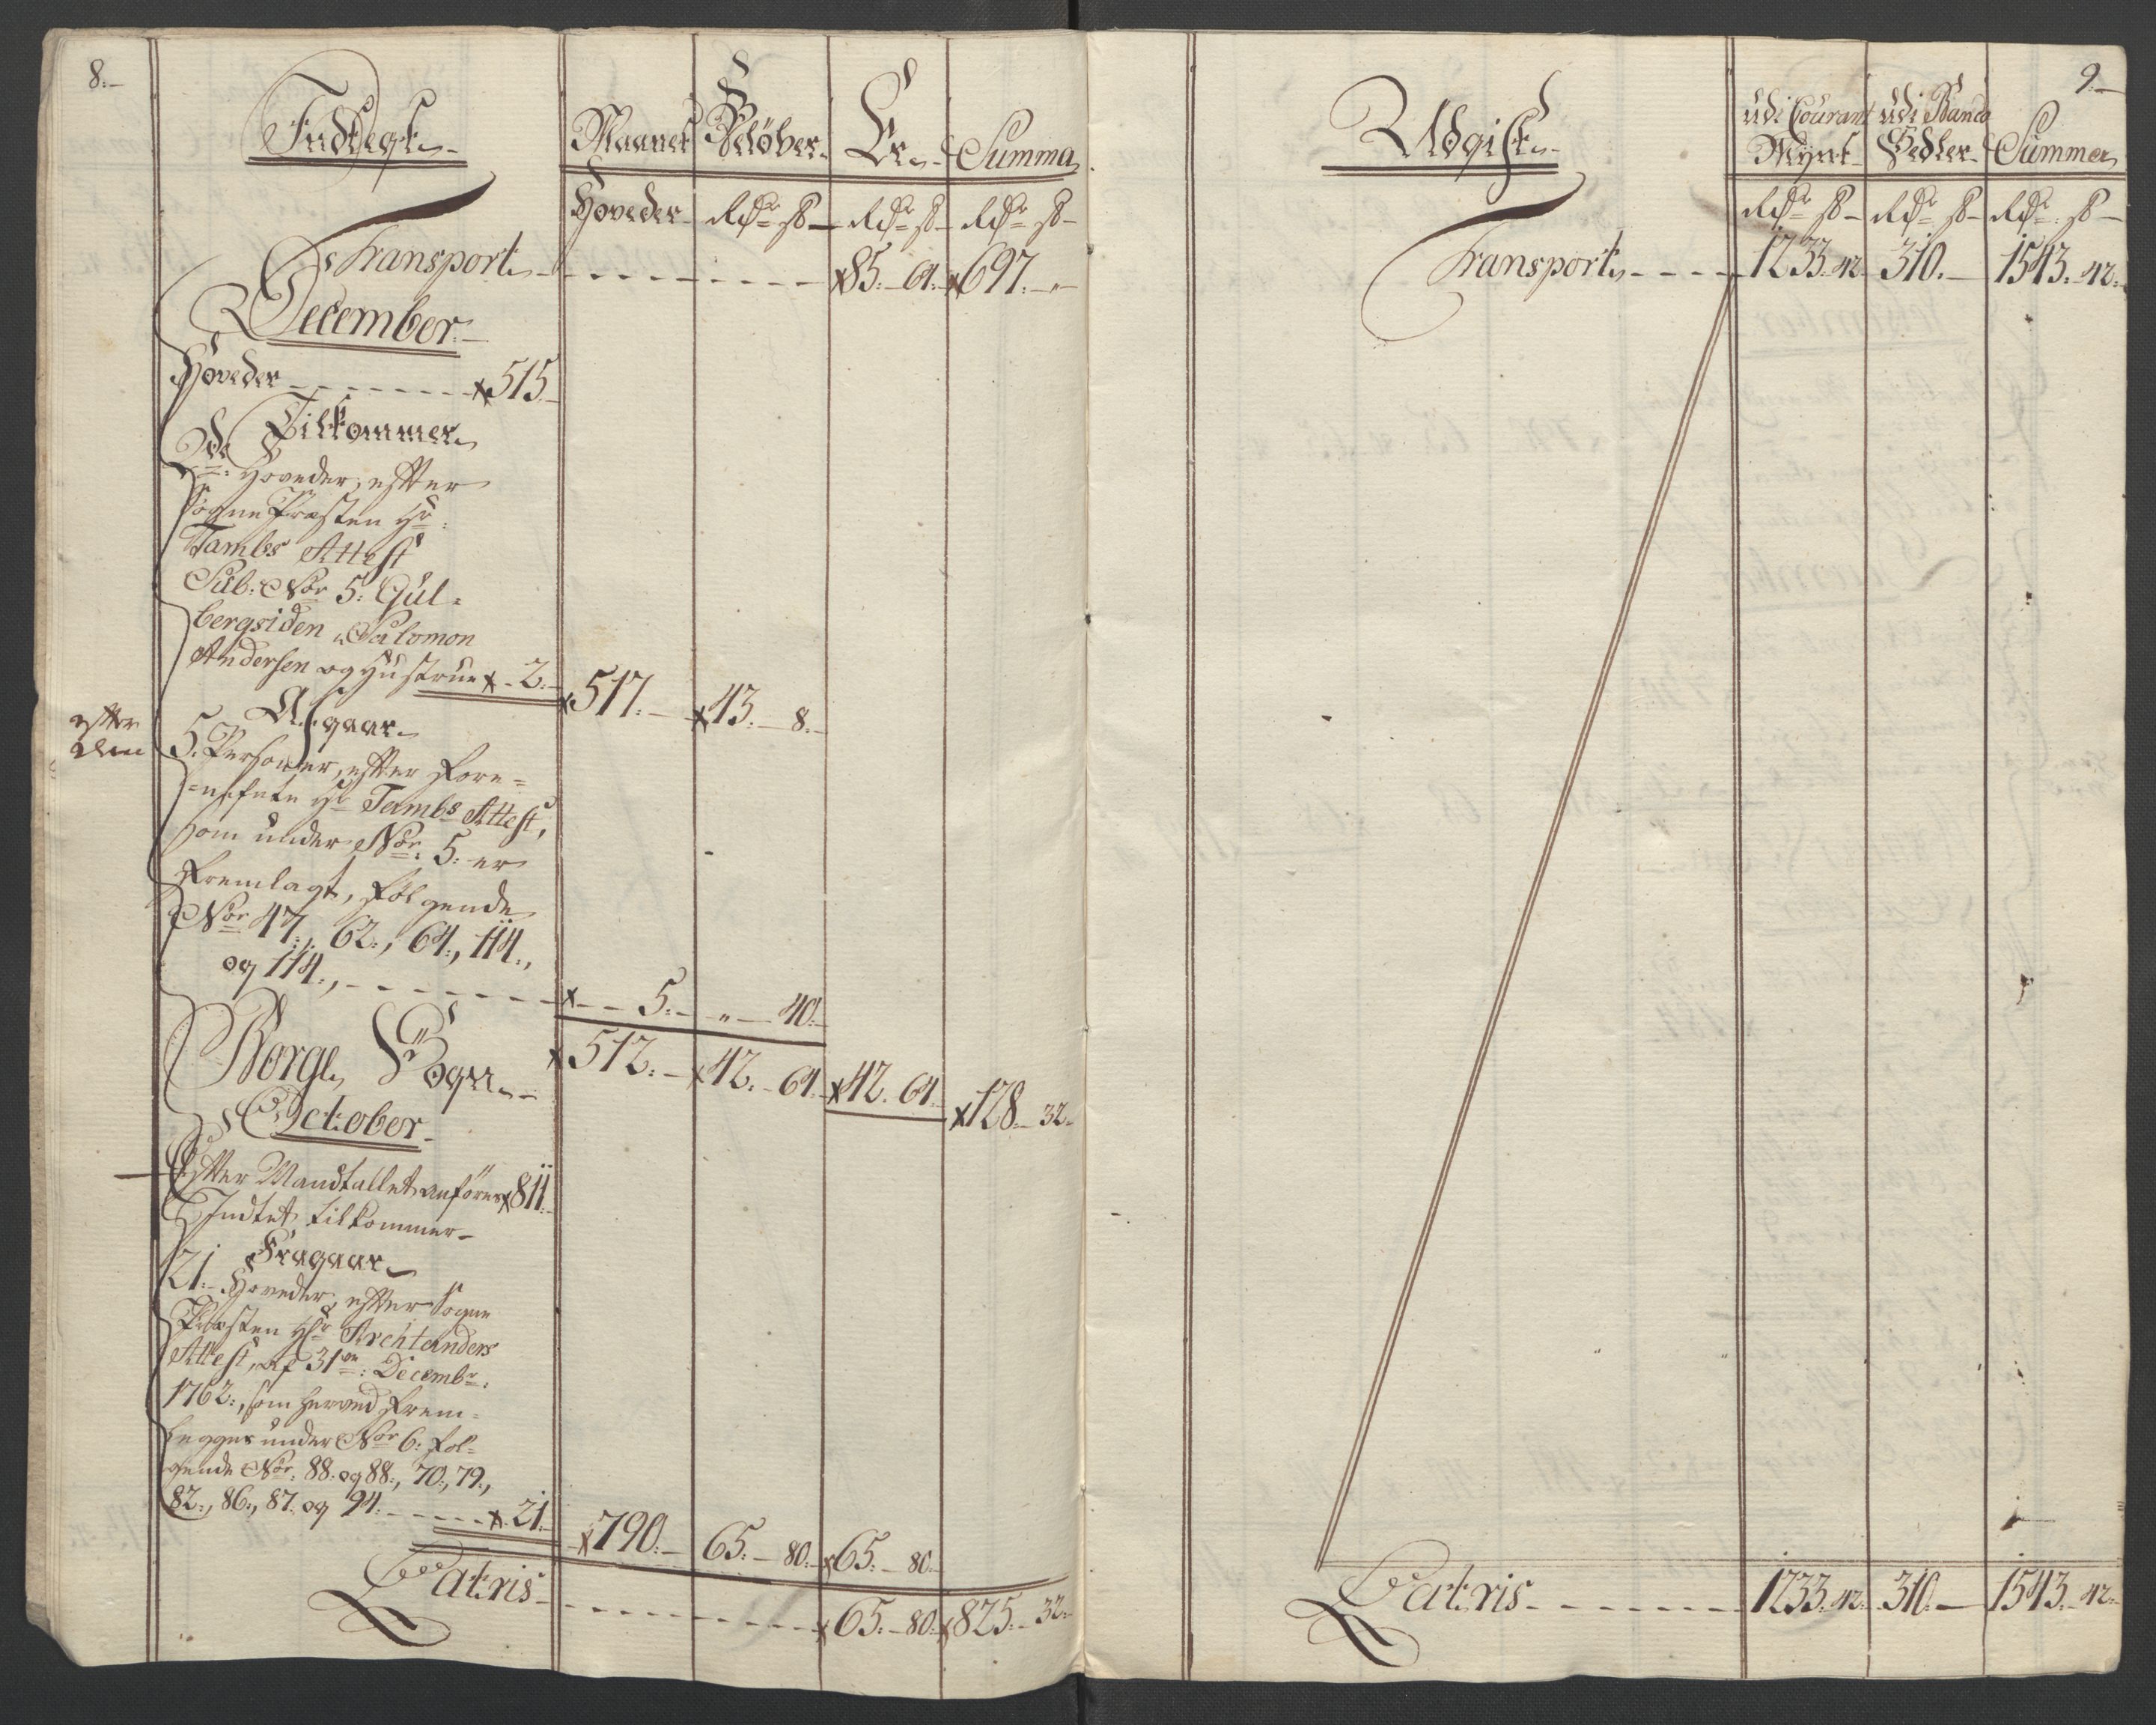 8.
Indtegt
Maanet
Beløber
Er
Summa
Hoveder
Rdr ß
Rdr ß
Rdr ß
Transport
85. 64.
697.
December
Hoveder
515
Tilkommer
Hoveder, efter
Sogne Præsten Hr
Tambs Attest
Sub: No 5: Gul=
bergsiden Salomon
Andersen og Hustrue
2.
517.
43. 8.
efter
dem
Afgaar
5. Personer, efter Fore=
=nefnte Hr Tambs Attest,
som under Nor: 5: er
Fremlagt, følgende
Nor 47., 62., 64., 114.,
og 114.,
5. 40.
512.
42. 64.
42. 64.
128. 32.
Borge Sogn
October
Efter Mandtallet anføres 811.
Indtet tilkommer
Fragaar
21. Hoveder, efter Sogne
Præsten Hr Archtanders
Attest, af 31te: Decembr:
1762:, som herved Frem=
legges under Nor 6: føl=
gende Nor: 88. og 88., 70., 79.,
82., 86., 87. og 94.
21.
790.
65. 80.
65. 80.
Latris
65. 80.
825. 32.
9.
Udgift
udi Courant
Mynt
udi Banco
Sedler
Summa
Rdr ß
Rdr ß
Rdr ß
Transport
1233. 42
310.
1543. 42.
Latris
1233. 42.
310.
1543. 42.